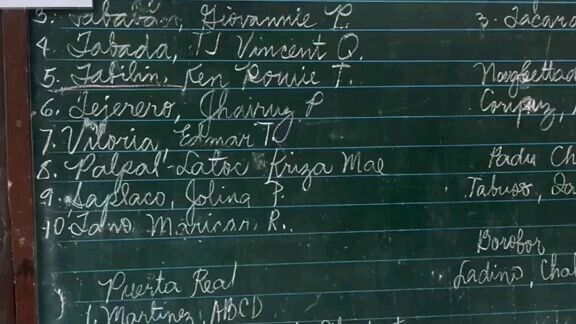 3. Tababan, Giovannie P.
4. Tabada, TJ Vincent Q.
5. Tabilin, Ken Rouie T.
6. Tejerero, Jhavruz P
7. Viloria, Edmar T.
8. Palpal-Latoc Kriza Mae
9. Saplaco, Jolina P.
10. Tano Maricar R.
Puerta Real
1. Martinez, ABCD
3.
Corpuz,
Padu
Dorobor
Ladino, Chal